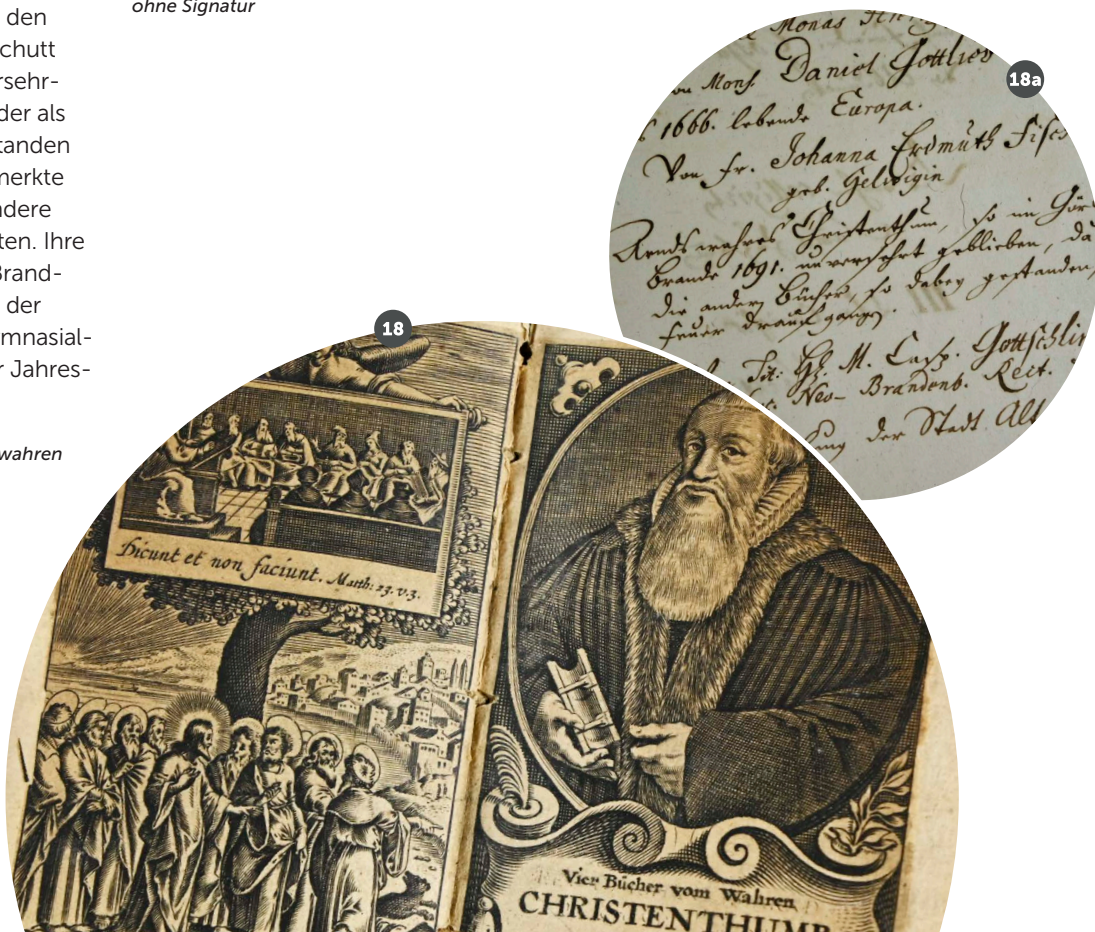 den
chutt
rsehr-
der als
tanden
merkte
ndere
ten. Ihre
Brand-
der
mnasial-
r Jahres-
wahren
ohne Signatur
18a
Monas
Mons. Daniel Gottlieb
1666. lebende Europa.
Von Fr. Johanna Erdmuth Fisch
geb. Gelwigin
Arnds wahres Christenthum, so in Gör
brande 1691. unversehrt geblieben, da
die andern Bücher, so dabey gestanden,
feuer drauf gangen.
Tit. H. M. Casp. Gottschlin
Neo-Brandenb. Rect.
der Stadt Alt
18
Dicunt et non faciunt. Matth: 23. v. 3.
Vier Bücher vom Wahren
CHRISTENTHUMB